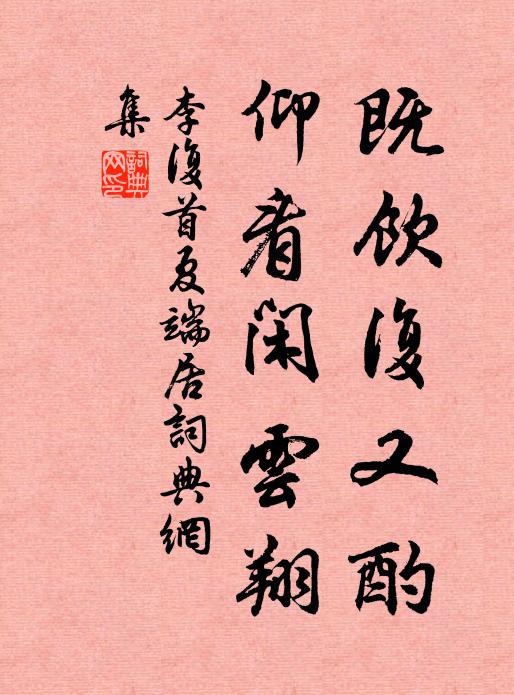 既飲復又酌
仰看閑雲翔
李復首夏端居詞典網
集
詞典網印